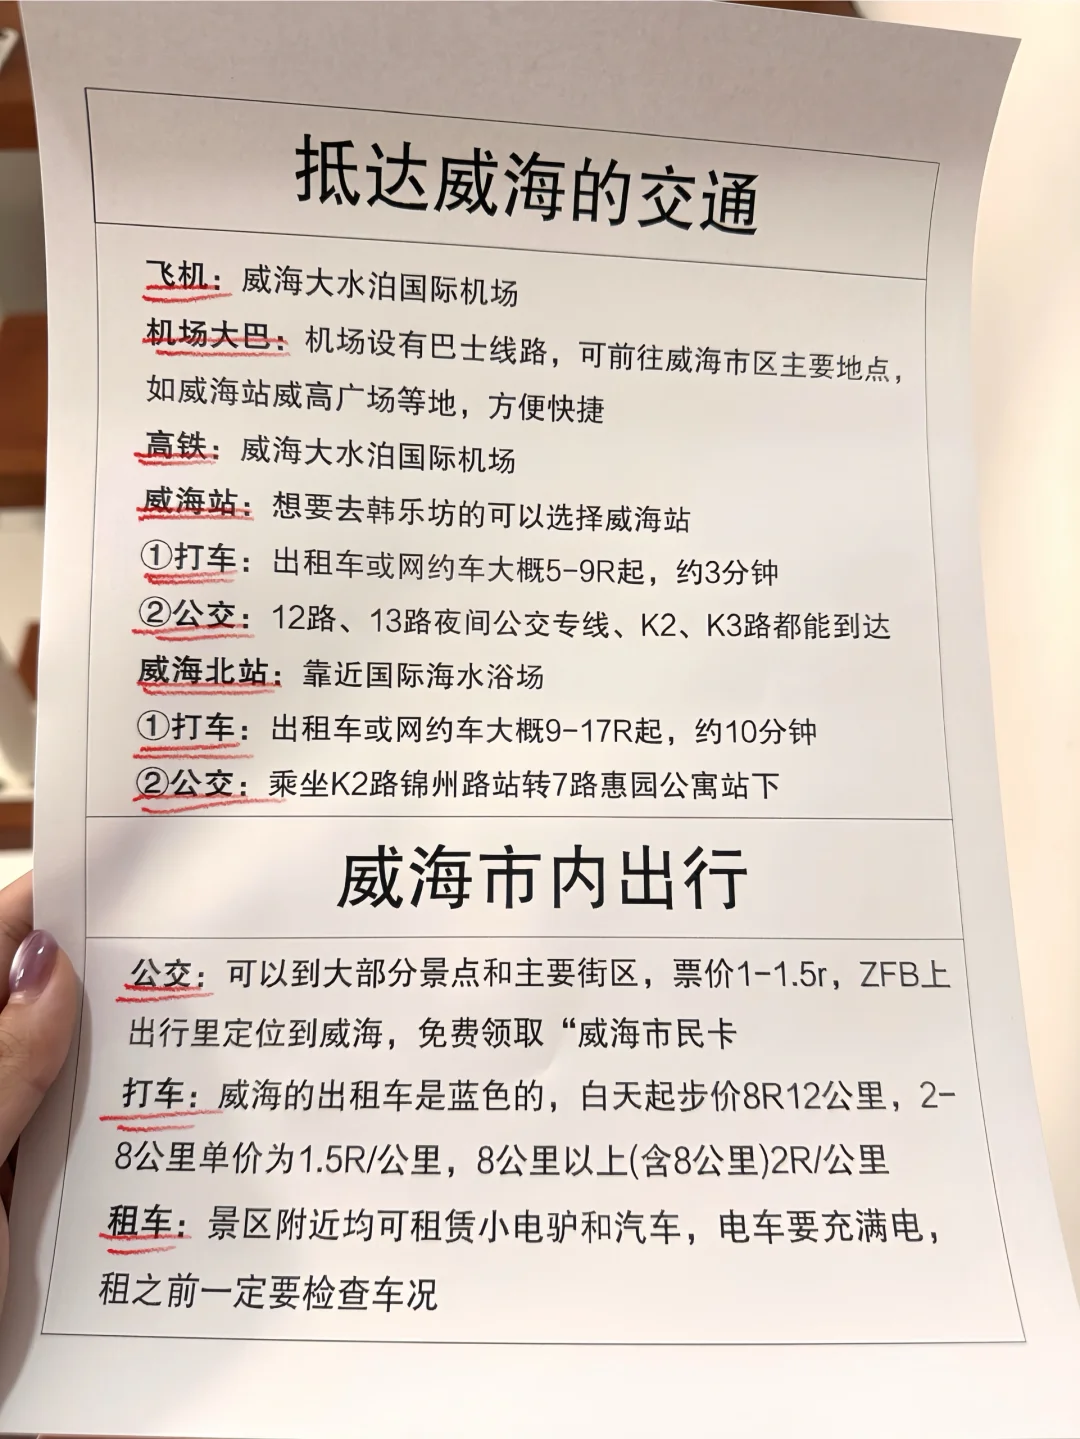 抵达威海的交通
飞机：威海大水泊国际机场
机场大巴：机场设有巴士线路，可前往威海市区主要地点，
如威海站威高广场等地，方便快捷
高铁：威海大水泊国际机场
威海站：想要去韩乐坊的可以选择威海站
①打车：出租车或网约车大概5-9R起，约3分钟
②公交：12路、13路夜间公交专线、K2、K3路都能到达
威海北站：靠近国际海水浴场
①打车：出租车或网约车大概9-17R起，约10分钟
②公交：乘坐K2路锦州路站转7路惠园公寓站下
威海市内出行
公交：可以到大部分景点和主要街区，票价1-1.5r，ZFB上
出行里定位到威海，免费领取“威海市民卡
打车：威海的出租车是蓝色的，白天起步价8R12公里，2-
8公里单价为1.5R/公里，8公里以上(含8公里)2R/公里
租车：景区附近均可租赁小电驴和汽车，电车要充满电，
租之前一定要检查车况